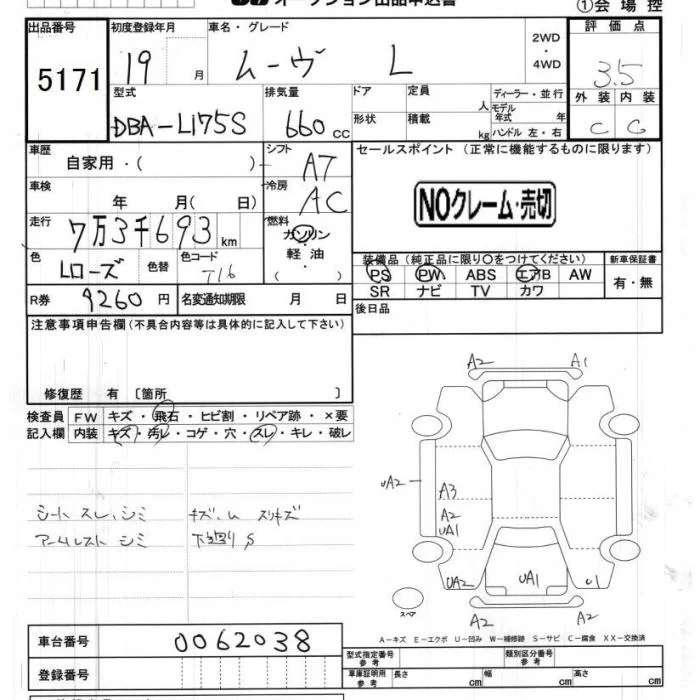 オークション出品申込書
①会場控
出品番号
5171
初度登録年月
19 月
車名・グレード
ムーヴ L
2WD
・
4WD
評価点
3.5
外装 内装
C C
型式
DBA-L175S
排気量
660 cc
ドア
形状
定員 人
積載 kg
ディーラー・並行
モデル年式 年
ハンドル 左・右
車歴
自家用・( )
シフト
AT
セールスポイント (正常に機能するものに限ります)
NOクレーム・売切
車検
年 月( 日)
冷房
AC
走行
7万3千693 km
燃料
ガソリン
軽油
・( )
色
Lローズ
色替
色コード
T16
装備品 (純正品に限り○をつけてください)
PS PW ABS エアB AW
SR ナビ TV カワ
新車保証書
有・無
R券
9260 円
名変通知期限 月 日
後日品
注意事項申告欄(不具合内容等は具体的に記入して下さい)
修復歴 有 〔箇所 〕
検査員
記入欄
FW キズ・飛石・ヒビ割・リペア跡・×要
内装 キズ・汚レ・コゲ・穴・スレ・キレ・破レ
シート スレ、シミ
キズ、ム スリキズ
アームレスト シミ
下廻り S
A2 A1
UA2
A3
A2
UA1
UA2 UA1 U1
スペア
A2 A2
A−キズ E−エクボ U−凹み W−補修跡 S−サビ C−腐食 XX−交換済
車台番号
0062038
登録番号
型式指定番号
参考
類別区分番号
参考
車庫証明用
参考
長さ cm 幅 cm 高さ cm